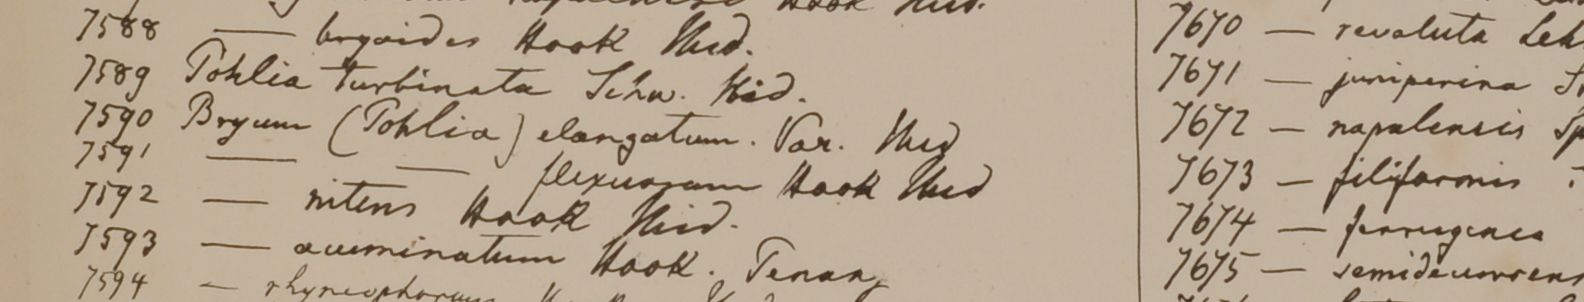 Hook
7588 — bryoides Hook Ibid.
7589 Pohlia turbinata Schw. Ibid.
7590 Bryum (Pohlia) elongatum. Var. Ibid
7591 — — flexuosum Hook Ibid
7592 — nitens Hook Ibid.
7593 — acuminatum Hook. Penang
7594 —
7670 — revoluta Leh
7671 — juniperina
7672 — napalensis Sp
7673 — filiformis
7674 — ferruginea
7675 —